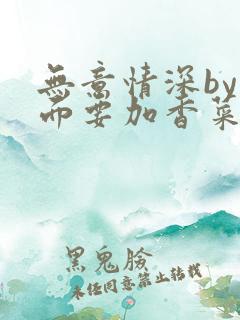 無意情深by
而要加香菜
黑鬼胯
未经同意禁止转载